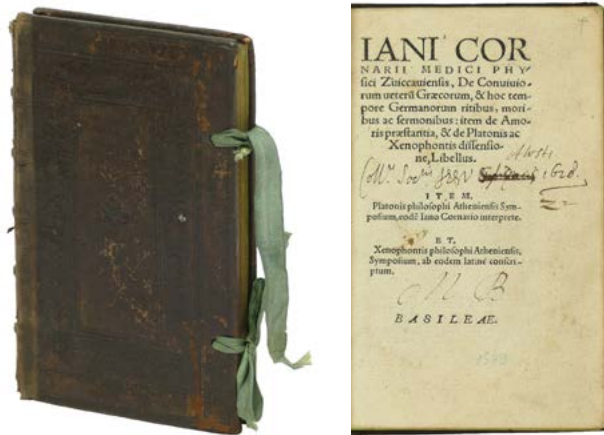 IANI COR
NARII MEDICI PHY
sici Zuiccauiensis, De Conuiuio-
rum ueterū Græcorum, & hoc tem-
pore Germanorum ritibus, mori-
bus ac sermonibus: item de Amo-
ris præstantia, & de Platonis ac
Xenophontis dissensio-
ne, Libellus.
Coll. Soc. 1628.
ITEM.
Platonis philosophi Atheniensis Sym-
posium, eodē Iano Cornario interprete.
ET.
Xenophontis philosophi Atheniensis,
Symposium, ab eodem latinè conscri-
ptum.
M B
BASILEAE.